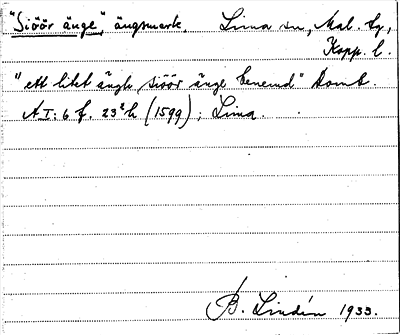 "Siöör änge", ängsmark. Lima sn, Mal. ty,
Kopp. l.
"ett litet ängh siöör änge benemd" Domb.
AI: 6 f. 23 (1599); Lima.
B. Lindén 1933.